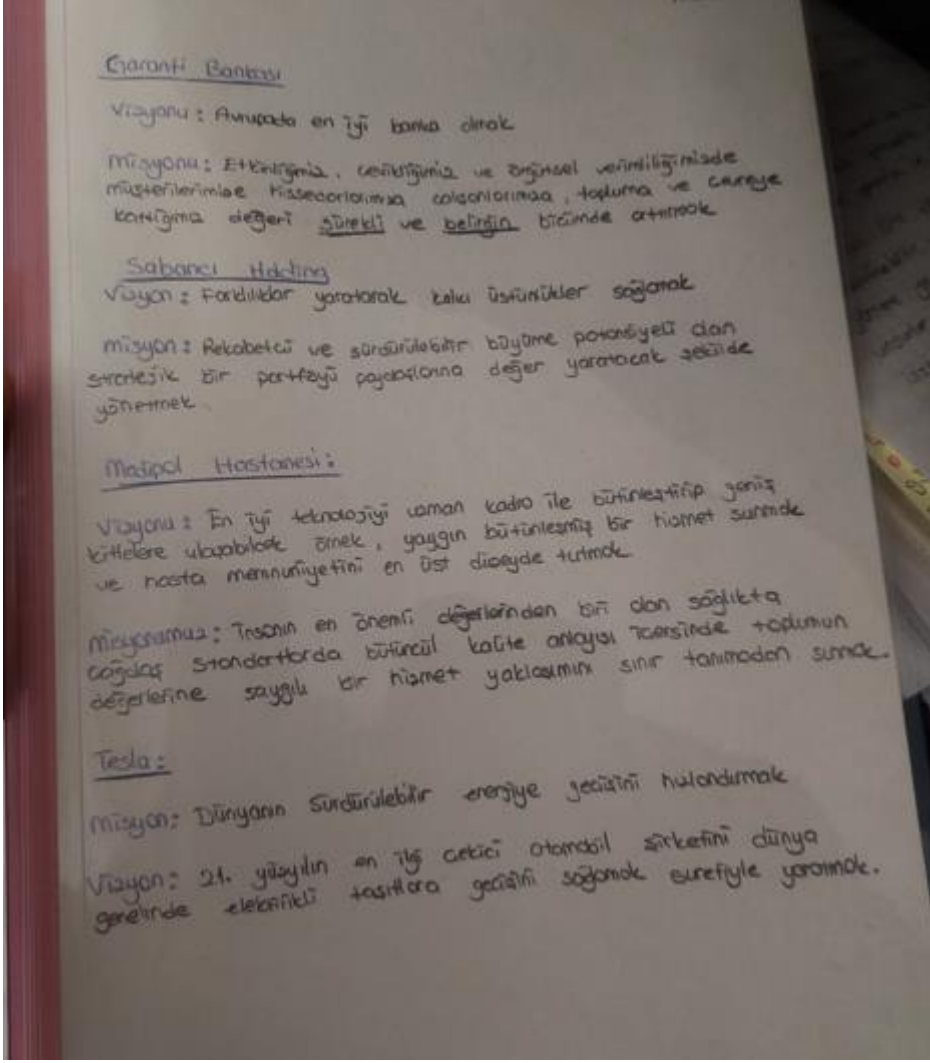 Garanti Bankası
Vizyonu : Avrupada en iyi banka olmak
misyonu : Etkinliğimiz, çevikliğimiz ve örgütsel verimliliğimizde
müşterilerimize hissedarlarımıza çalışanlarımıza, topluma ve çevreye
kattığımız değeri sürekli ve belirgin biçimde artırmak
Sabancı Holding
Vizyon : Farklılıklar yaratarak kalıcı üstünlükler sağlamak
misyon : Rekabetci ve sürdürülebilir büyüme potansiyeli olan
stratejik bir portföyü paydaşlarına değer yaratacak şekilde
yönetmek.
Medipol Hastanesi :
Vizyonu : En iyi teknolojiyi uzman kadro ile bütünleştirip geniş
kitlelere ulaşabilecek örnek, yaygın bütünleşmiş bir hizmet sunmak
ve hasta memnuniyetini en üst düzeyde tutmak
misyonumuz : İnsanın en önemli değerlerinden biri olan sağlıkta
çağdaş standartlarda bütüncül kalite anlayışı içersinde toplumun
değerlerine saygılı bir hizmet yaklaşımını sınır tanımadan sunmak.
Tesla :
misyon : Dünyanın sürdürülebilir enerjiye geçişini hızlandırmak
Vizyon : 21. yüzyılın en ilgi çekici otomobil şirketini dünya
genelinde elektrikli taşıtlara geçişini sağlamak suretiyle yaratmak.